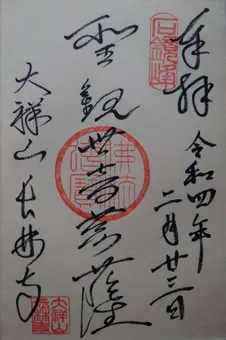 奉拝
令和四年
二月廿三日
聖観世音菩薩
大祥山 長林寺